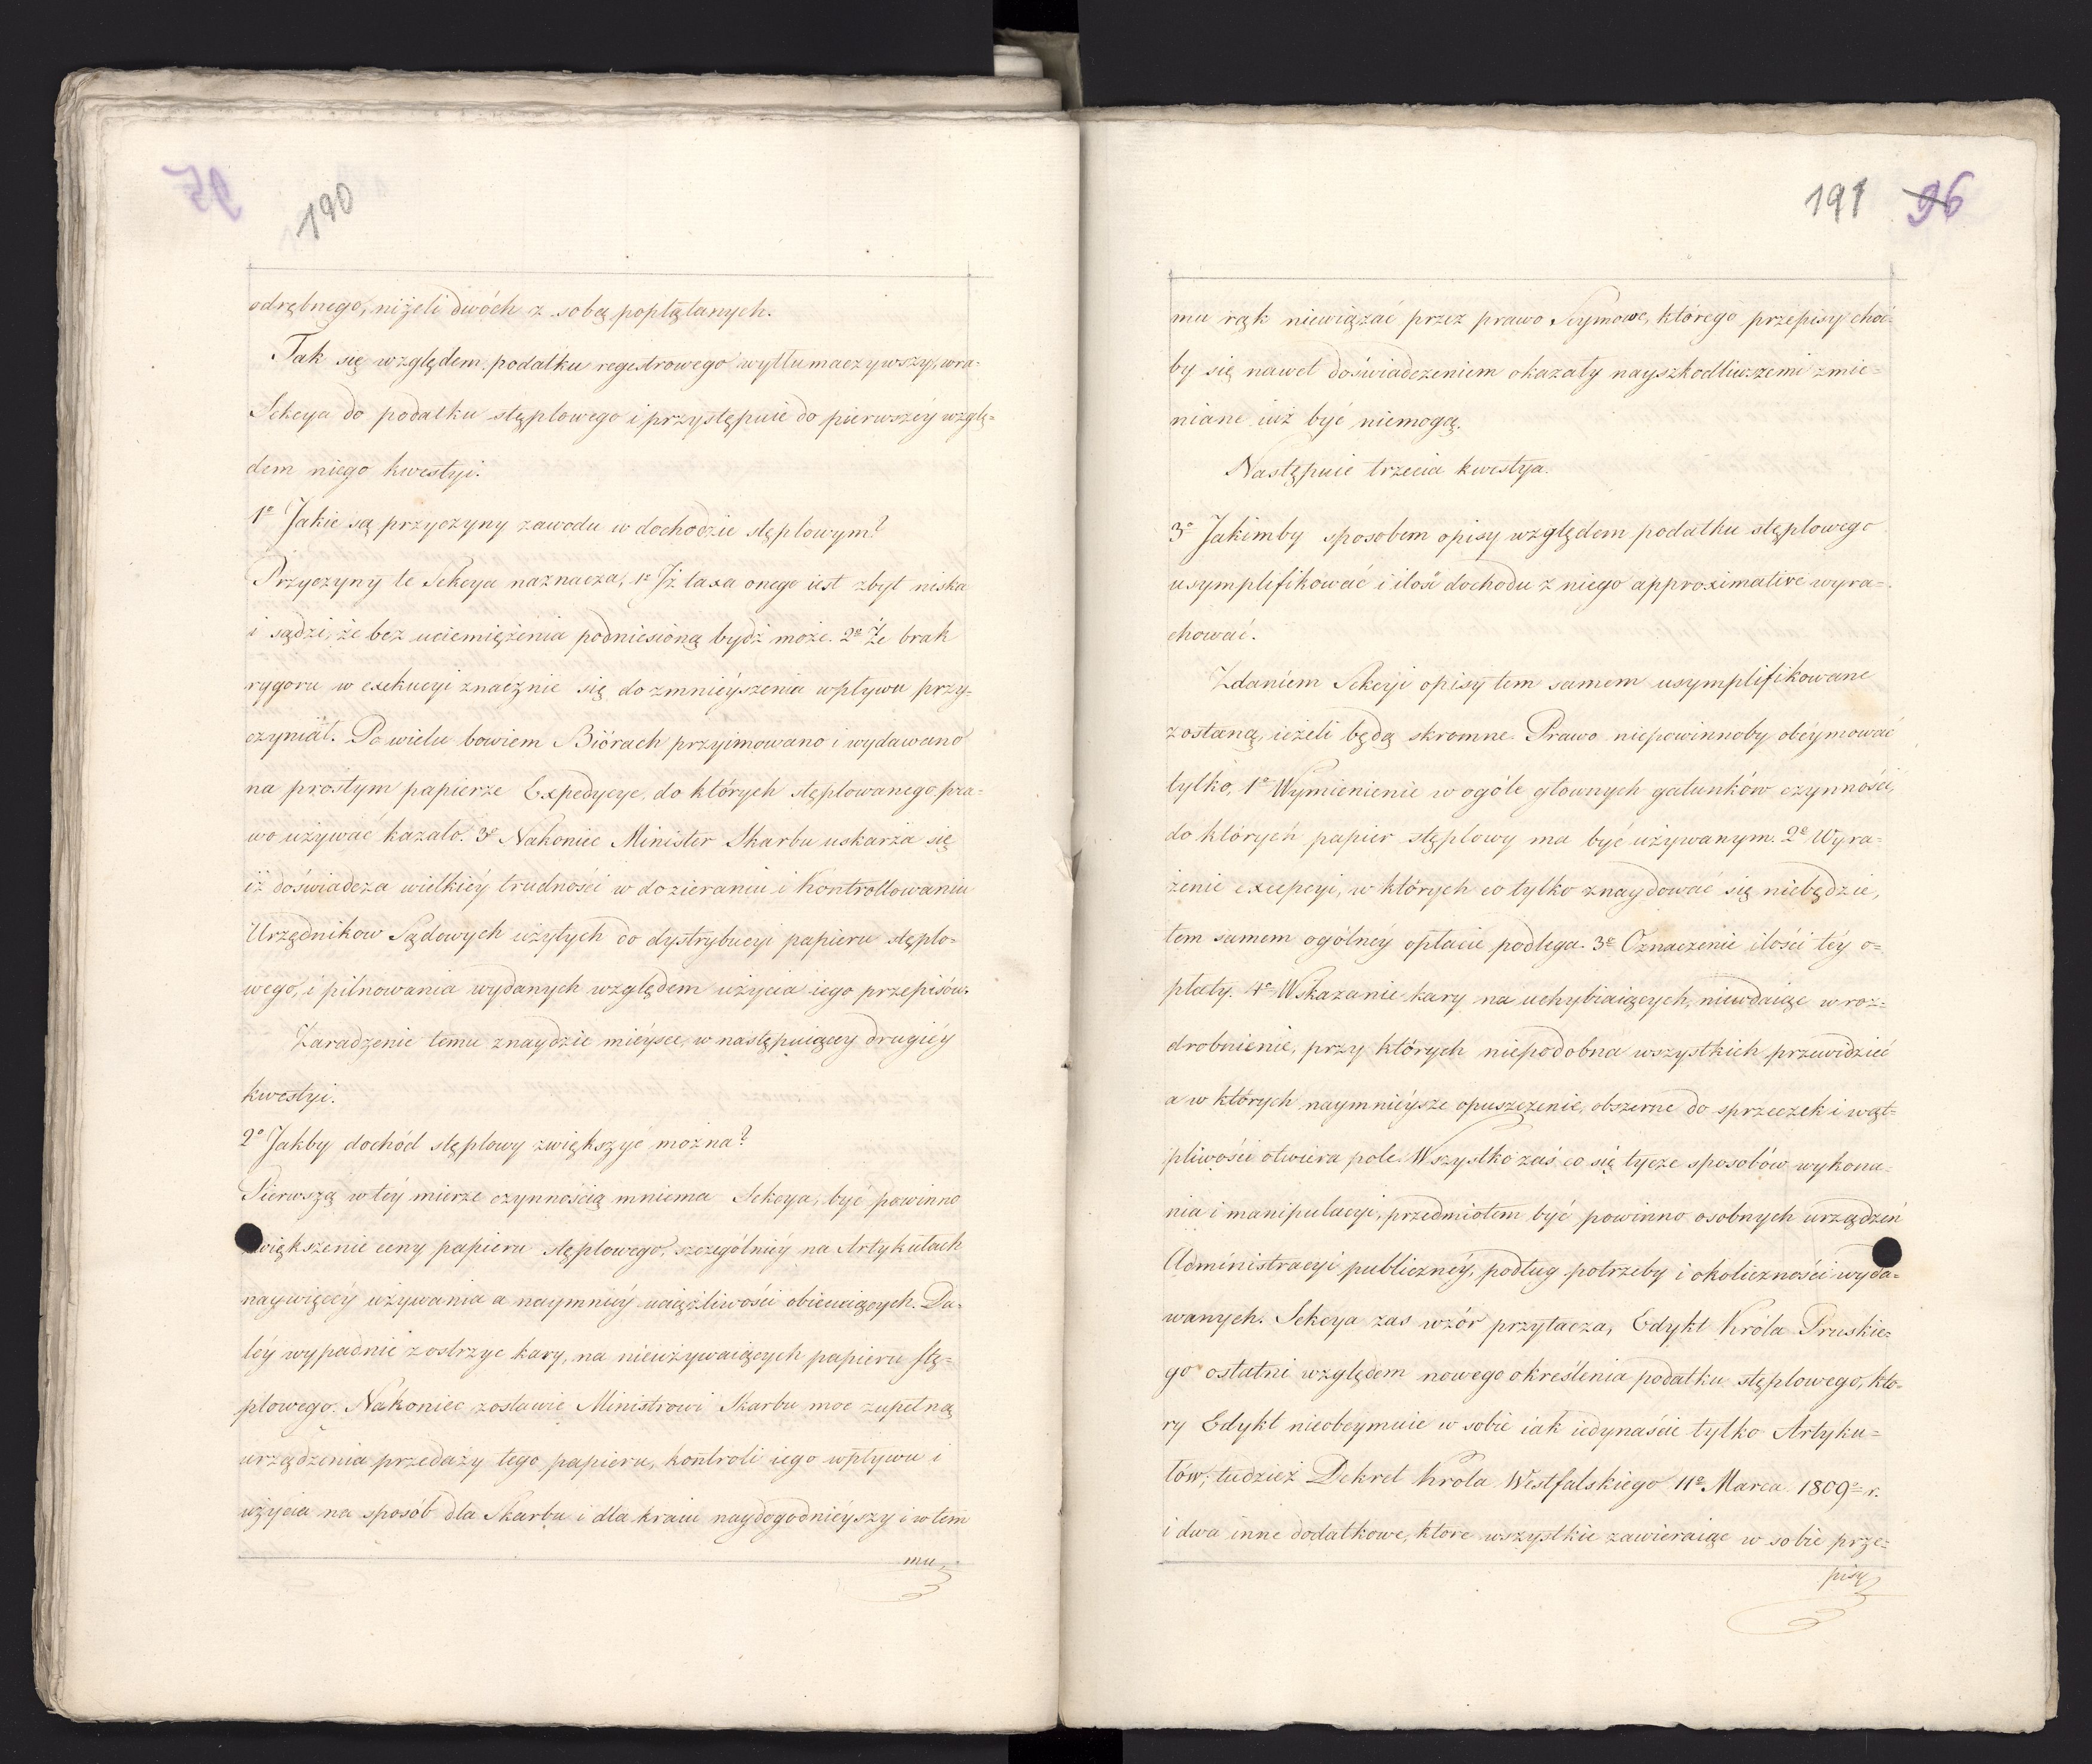 95
190
odrębnego, niżeli dwóch z sobą poplątanych.
Tak się względem podatku regestrowego wytłumaczywszy, wra-
Sekcya do podatku stęplowego i przystępuie do pierwszéy wzglę=
dem niego kwestyi.
1º Jakie są przyczyny zawodu w dochodzie stęplowym?
Przyczyny te Sekcya naznacza, 1º Jż taxa onego iest zbyt niska
i sądzi, że bez uciemiężenia podniesioną bydź może. 2º Że brak
rygoru w exekucyi znacznie się do zmnieyszenia wpływu przy-
czyniał. Po wielu bowiem Biórach przyimowano i wydawano
na prostym papierze Expedycye, do których stęplowanego pra-
wo używać kazało. 3º Nakoniec Minister Skarbu uskarża się
iż doświadcza wielkiéy trudności w dozieraniu i Kontrollowaniu
Urzędnikow Sądowych użytych do dystrybucyi papieru stęplo-
wego, i pilnowania wydanych względem użycia iego przepisów.
Zaradzenie temu znaydzie mieysce, w następuiącey drugiéy
kwestyi.
2º Jakby dochód stęplowy zwiększyć można?
Pierwszą w téy mierze czynnością mniema Sekcya, być powinno
zwiększenie ceny papieru stęplowego, szczególniéy na Artykułach
naywięcéy używania a naymniéy uciążliwości obiecuiących. Da-
léy wypadnie zostrzyc kary, na nieużywaiących papieru stę=
plowego. Nakoniec zostawić Ministrowi Skarbu moc zupełną
urządzenia przedaży tego papieru, kontroli iego wpływu i
użycia na sposób dla Skarbu i dla kraiu naydogodniéyszy i w tem
mu
191 96
mu rąk niewiązać przez prawo Seymowe, którego przepisy choć-
by się nawet doświadczeniem okazały nayszkodliwszemi zmie=
niane iuż być niemogą.
Następuie trzecia kwestya.
3º Jakimby sposobem opisy względem podatku stęplowego
usymplifikować i ilość dochodu z niego approximative wyra=
chować.
Zdaniem Sekcyi opisy tem samem usymplifikowane
zostaną, ieżeli będą skromne. Prawo niepowinnoby obéymować
tylko, 1º Wymienienie w ogóle głownych gatunków czynności,
do których papier stęplowy ma być używanym. 2º Wyra-
żenie excepcyi, w których co tylko znaydować się niebędzie,
tem samem ogólnéy opłacie podlega. 3º Oznaczenie ilości téy o=
płaty. 4º Wskazanie kary na uchybiaiących, niewdaiąc w roz=
drobnienie, przy których niepodobna wszystkich przewidzieć
a w których naymniéysze opuszczenie, obszerne do sprzeczek i wąt-
pliwości otwiera pole. Wszystko zaś co się tycze sposobów wykona-
nia i manipulacyi, przedmiotem być powinno osobnych urządzeń
Administracyi publicznéy, podług potrzeby i okoliczności wyda=
wanych. Sekcya zas wzór przytacza, Edykt Króla Pruskie=
go ostatni względem nowego określenia podatku stęplowego, kto-
ry Edykt nieobeymuie w sobie iak iedynaście tylko Artyku=
łów; tudzież Dekret Krola Westfalskiego 11º Marca 1809º r.
i dwa inne dodatkowe, ktore wszystkie zawieraiąc w sobie prze=
pisy